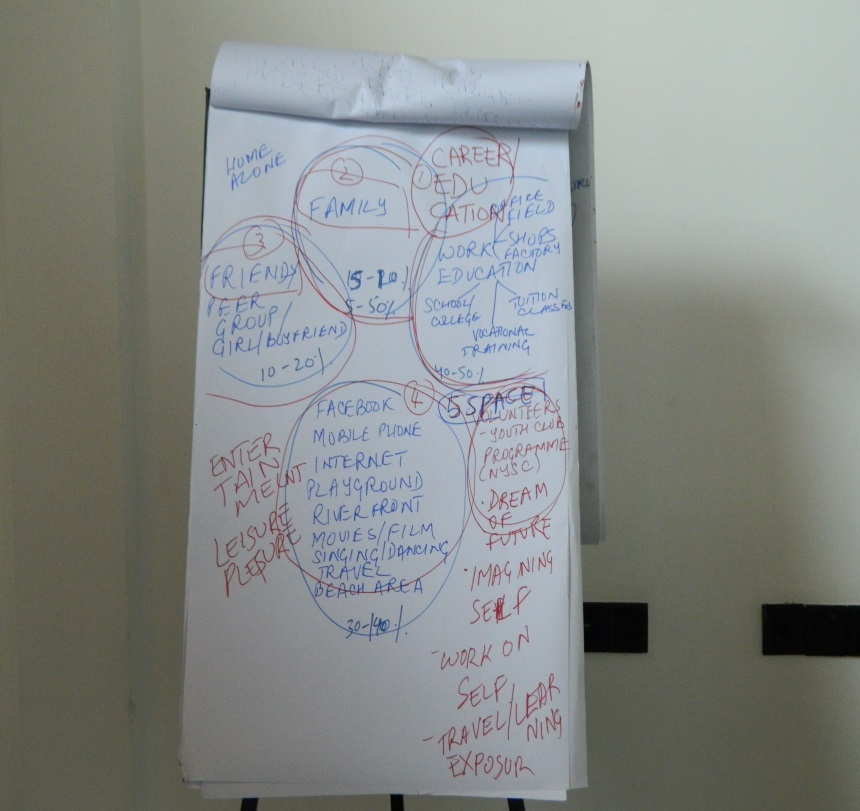 HOME
ALONE
②
FAMILY
15-20%
5-50%
①
CAREER/
EDU
CATION
OFFICE
FIELD
WORK
SHOPS
FACTORY
EDUCATION
SCHOOL/
COLLEGE
TUITION
CLASSES
VOCATIONAL
TRAINING
40-50%
③
FRIENDS
PEER
GROUP/
GIRL/BOYFRIEND
10-20%
④
FACEBOOK
MOBILE PHONE
INTERNET
PLAYGROUND
RIVER FRONT
MOVIES/FILM
SINGING/DANCING
TRAVEL
BEACH AREA
30-40%
ENTER
TAIN
MENT
LEISURE
PLESURE
5 SPACE
VOLUNTEERS
- YOUTH CLUB
PROGRAMME
(NYSC)
• DREAM
OF
FUTURE
• IMAGINING
SELF
- WORK ON
SELF
- TRAVEL/LEAR
NING
EXPOSUR